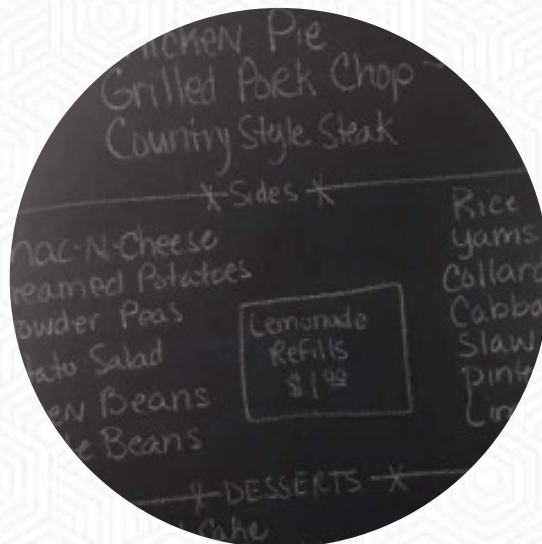 hicken Pie
Grilled Pork Chop
Country Style Steak
Sides
mac-N-Cheese
reamed Potatoes
owder Peas
tato Salad
en Beans
e Beans
Lemonade
Refills
$1.00
Rice
Yams
Collard
Cabba
Slaw
Pint
Lim
DESSERTS
Cake